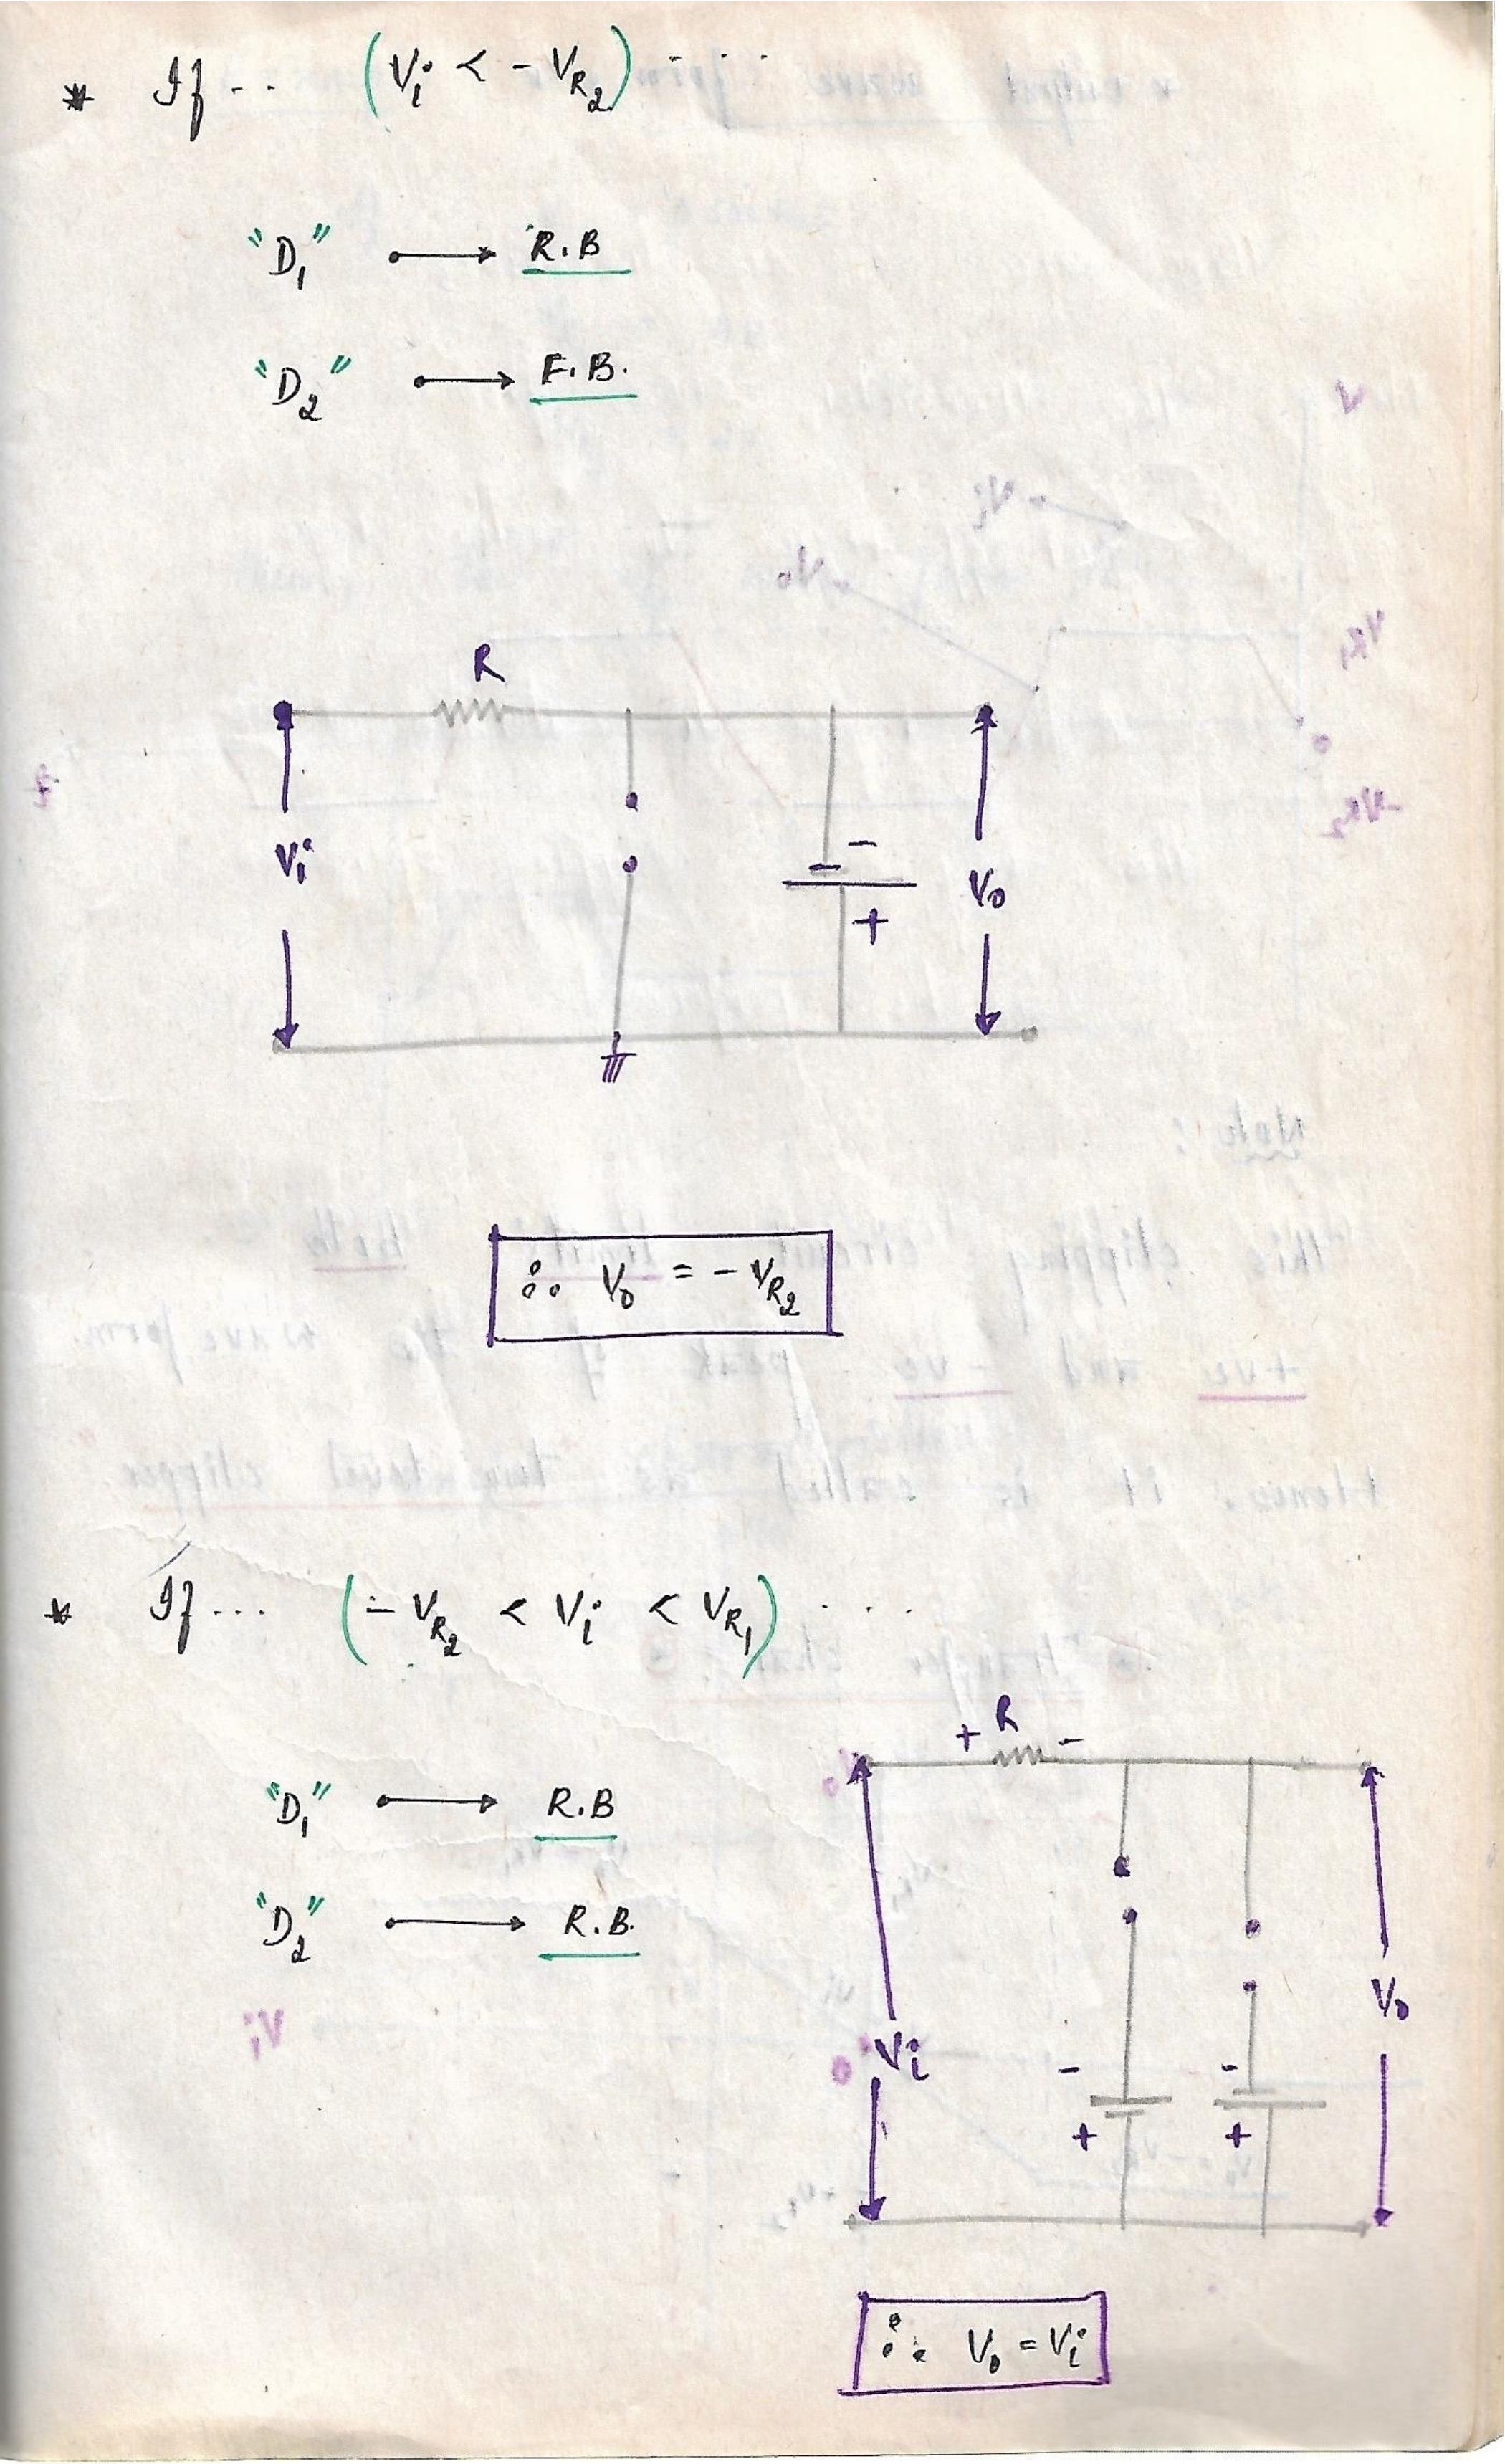 * If .. (Vi < - VR2) ....
"D1" •⟶ R.B
"D2" •⟶ F.B.
R
Vi
-
+
Vo
∴ Vo = - VR2
* If ... (- VR2 < Vi < VR1) ....
"D1" •⟶ R.B
"D2" •⟶ R.B.
+ R -
Vi
- -
+ +
Vo
∴ Vo = Vi